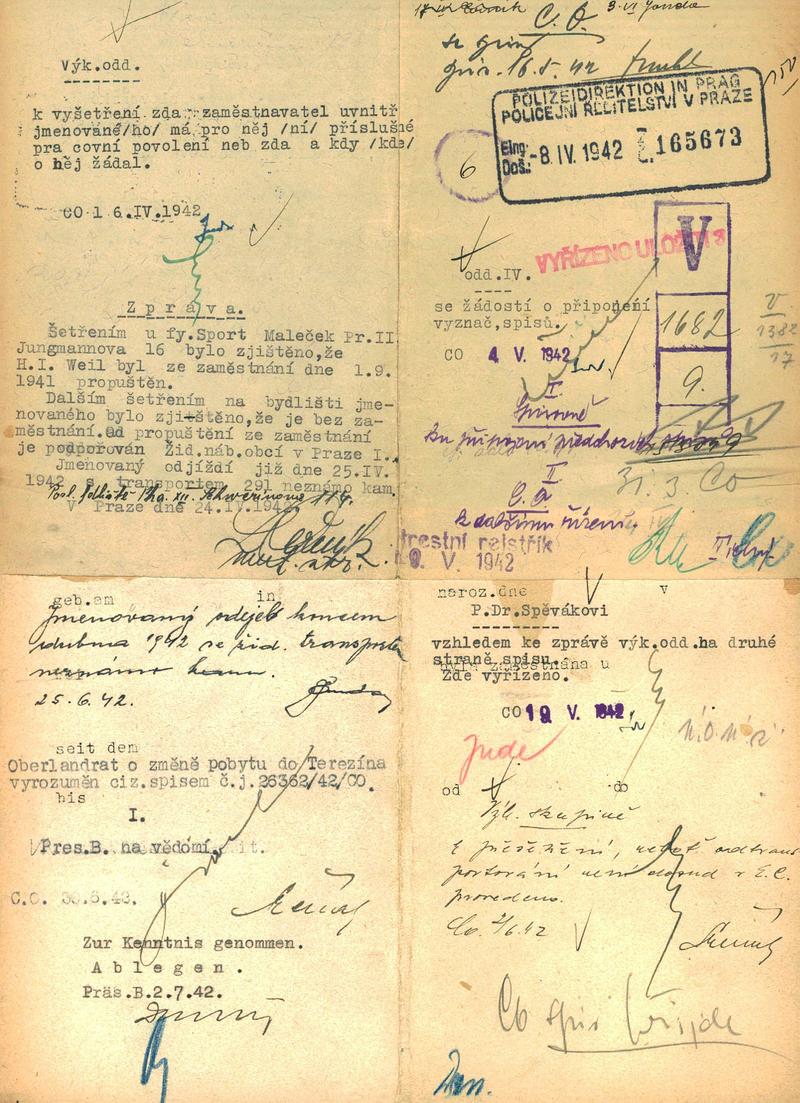 Výk.odd.
k vyšetření zda zaměstnavatel uvnitř
jmenované/ho/ má pro něj /ní/ příslušné
pra covní povolení neb zda a kdy /kde/
o něj žádal.
CO 1 6. IV. 1942
Zpráva.
Šetřením u fy.Sport Maleček Pr.II
Jungmannova 16 bylo zjištěno,že
H.I. Weil byl ze zaměstnání dne 1.9.
1941 propuštěn.
Dalším šetřením na bydlišti jme-
novaného bylo zjištěno,že je bez za-
městnání.Od propuštění ze zaměstnání
je podporován Žid.náb.obcí v Praze I.
Jmenovaný odjíždí již dne 25.IV.
1942 s transportem 291 neznámo kam.
V Praze dne 24.IV.1942
C.O.
16.5.42
POLIZEIDIREKTION IN PRAG
POLICEJNÍ ŘEDITELSTVÍ V PRAZE
Eing.
Doš.: -8. IV. 1942 Z. Č. 165673
6
V
VYŘÍZENO ULOŽIT
odd.IV.
se žádostí o připojení
vyznač,spisů.
CO 4 V. 1942
1682
9.
V
1382
17
I
Spisovně
II
C.O
k dalšímu řízení.
31.3. CO
trestní rejstřík
9. V. 1942
geb.am in
Jmenovaný odejel koncem
dubna 1942 se žid. transportem
neznámo kam.
25.6.42.
seit dem
Oberlandrat o změně pobytu do Terezína
vyrozuměn ciz.spisem č.j.26362/42/CO.
bis
I.
Pres.B. na vědomí.
C.O. 30.6.42.
Zur Kenntnis genommen.
Ablegen.
Präs.B.2.7.42.
naroz.dne v
P.Dr.Spěvákovi
vzhledem ke zprávě výk.odd.na druhé
straně spisu.
byl/a zaměstnána u
Zde vyřízeno.
CO 19 V. 1942
Jude
od do
Výk. skupině
k přešetření, neboť odtrans
portování není dosud v E.C.
provedeno.
Co. 2/6.42
Cb spis